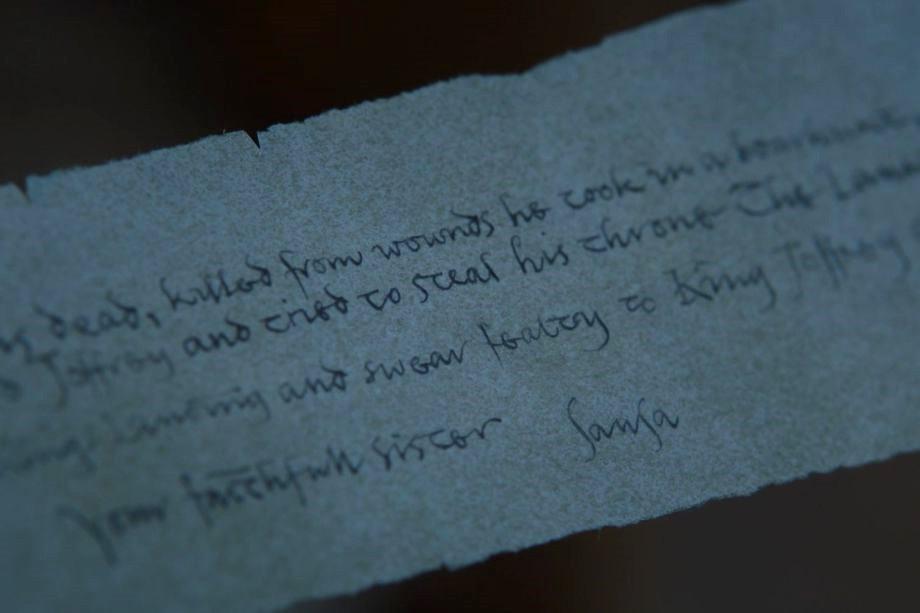 dead, killed from wounds he took in a boar hunt
Joffrey and tried to steal his throne The Lann
Landing and swear fealty to King Joffrey
your faithfull sister Sansa